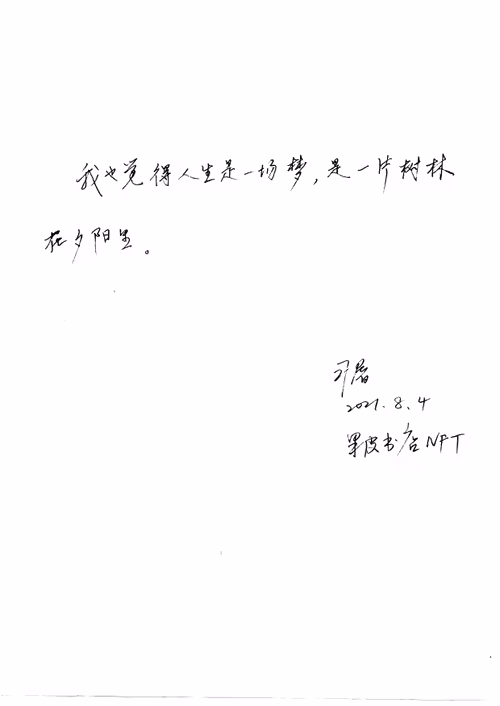 我也觉得人生是一场梦，是一片树林
在夕阳里。
2021.8.4
果皮书店NFT